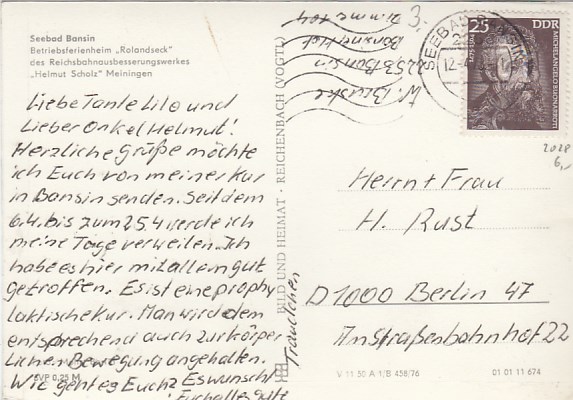 Seebad Bansin
Betriebsferienheim „Rolandseck"
des Reichsbahnausbesserungswerkes
„Helmut Scholz" Meiningen
Liebe Tante Lilo und
Lieber Onkel Helmut!
Herzliche Grüße möchte
ich Euch von meiner Kur
in Bansin senden. Seit dem
6.4. bis zum 25.4 werde ich
meine Tage verweilen. Ich
habe es hier mit allem gut
getroffen. Es ist eine prophy
laktische Kur. Man wird dem
entsprechend auch zur körper
lichen Bewegung angehalten.
Wie geht es Euch? Es wünscht
Euch alles Gute
Traudchen
EVP 0,25 M
BILD UND HEIMAT · REICHENBACH (VOGTL)
2253 Bansin
Zimmer 404
3,-
SEEBAD BANSIN
12.4
25
DDR
MICHELANGELO BUONARROTI
2028
6,-
Herrn + Frau
H. Rust
D 1000 Berlin 47
Am Straßenbahnhof 22
V 11 50 A 1/B 458/76
01 01 11 674